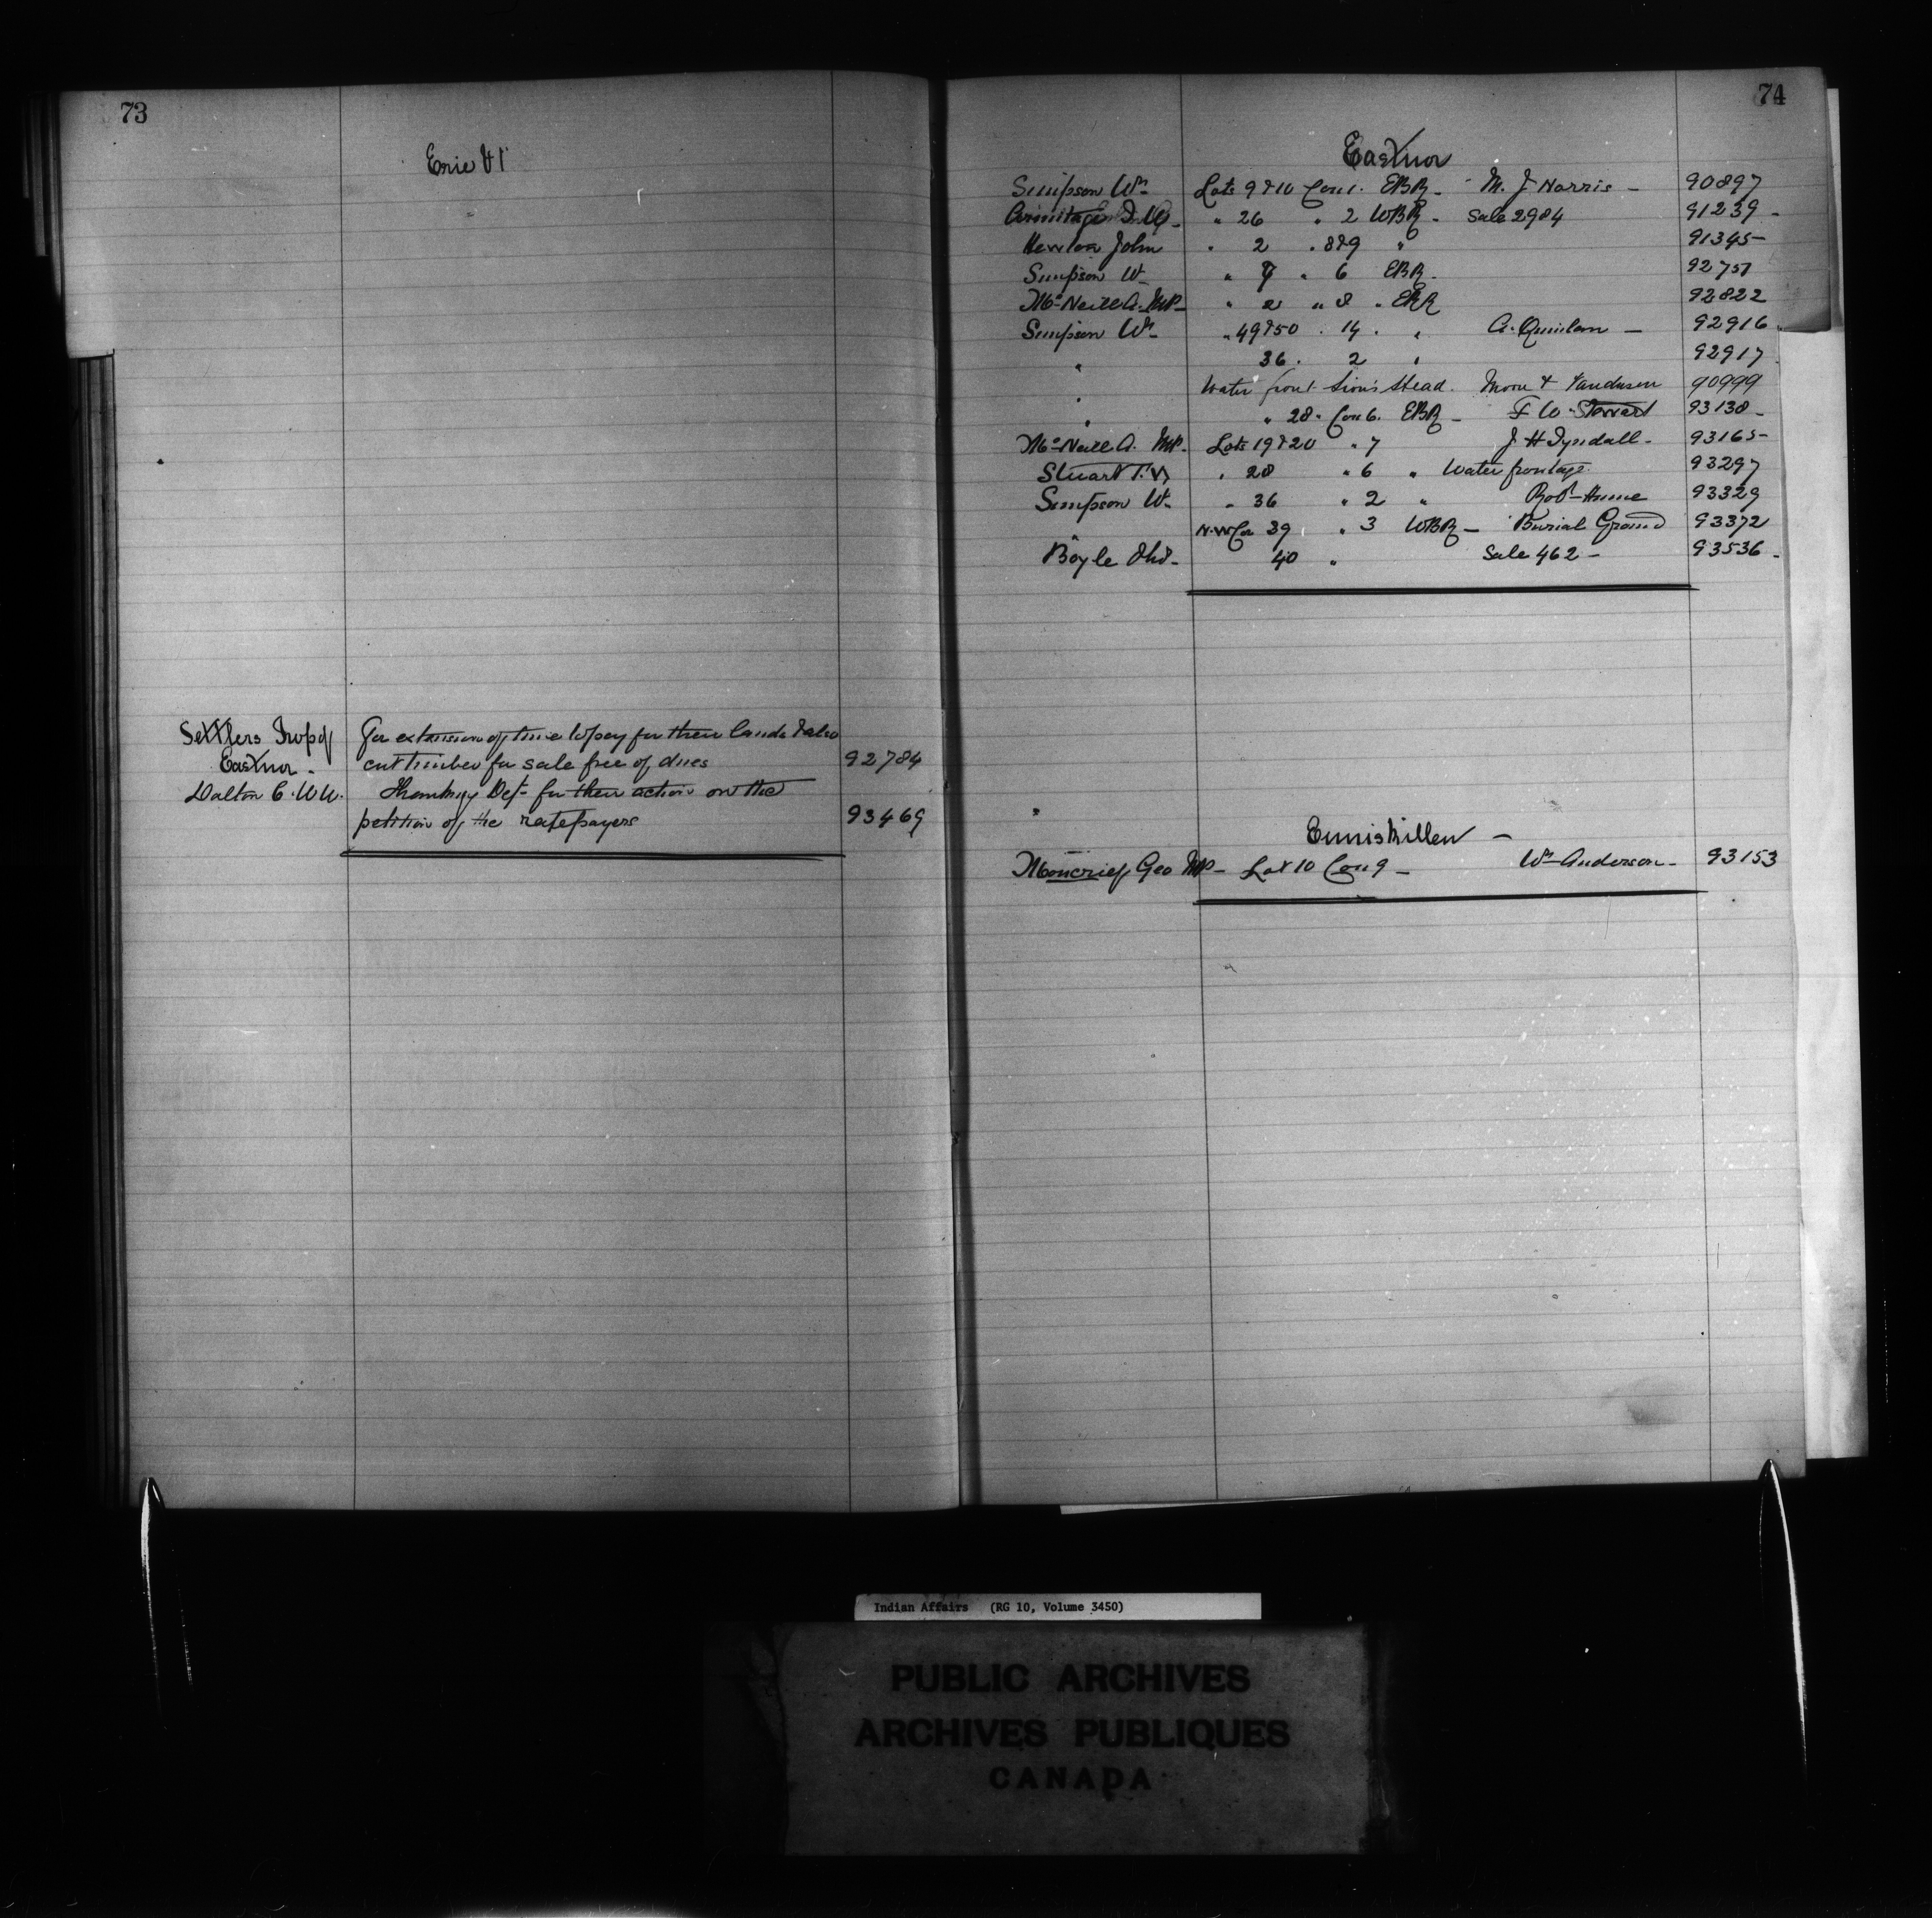 73
Erie
Settlers Twp of
Eastnor -
For extension of time to pay for their lands & also
cut timber for sale free of dues 92784
Dalton C. W. W. Thanking Dept for their action on the
petition of the ratepayers 93469
74
Eastnor
Simpson Wm - Lots 9 & 10 Con 1. EBR - M. J Norris - 90897
Armitage - " 26 " 2 WBR - Sale 2984 91239 -
John " 2 " 8 & 9 " 91345 -
Simpson W - " 9 " 6 EBR - 92751
McNeill A. MP - " 2 " 8 " EBR 92822
Simpson Wm - " 49 & 50 " 14 " " A. Quinlan - 92916
" 36 " 2 " 92917
" Water front Lion's Head. Moore & Vandusen 90999
" " 28 " Con 6. EBR - F W Stewart 93138 -
McNeill A. MP. Lots 19 & 20 " 7 J H Tyndall - 93165 -
Stuart F. W " 28 " 6 " Water frontage. 93297
Simpson W - " 36 " 2 " Robt Hume 93329
" N.W Cor 39 " 3 WBR - Burial Ground 93372
Boyle - 40 " Sale 462 - 93536 -
Enniskillen -
Moncrief Geo MP - Lot 10 Con 9 - Wm Anderson - 93153
Indian Affairs (RG 10, Volume 3450)
PUBLIC ARCHIVES
ARCHIVES PUBLIQUES
CANADA